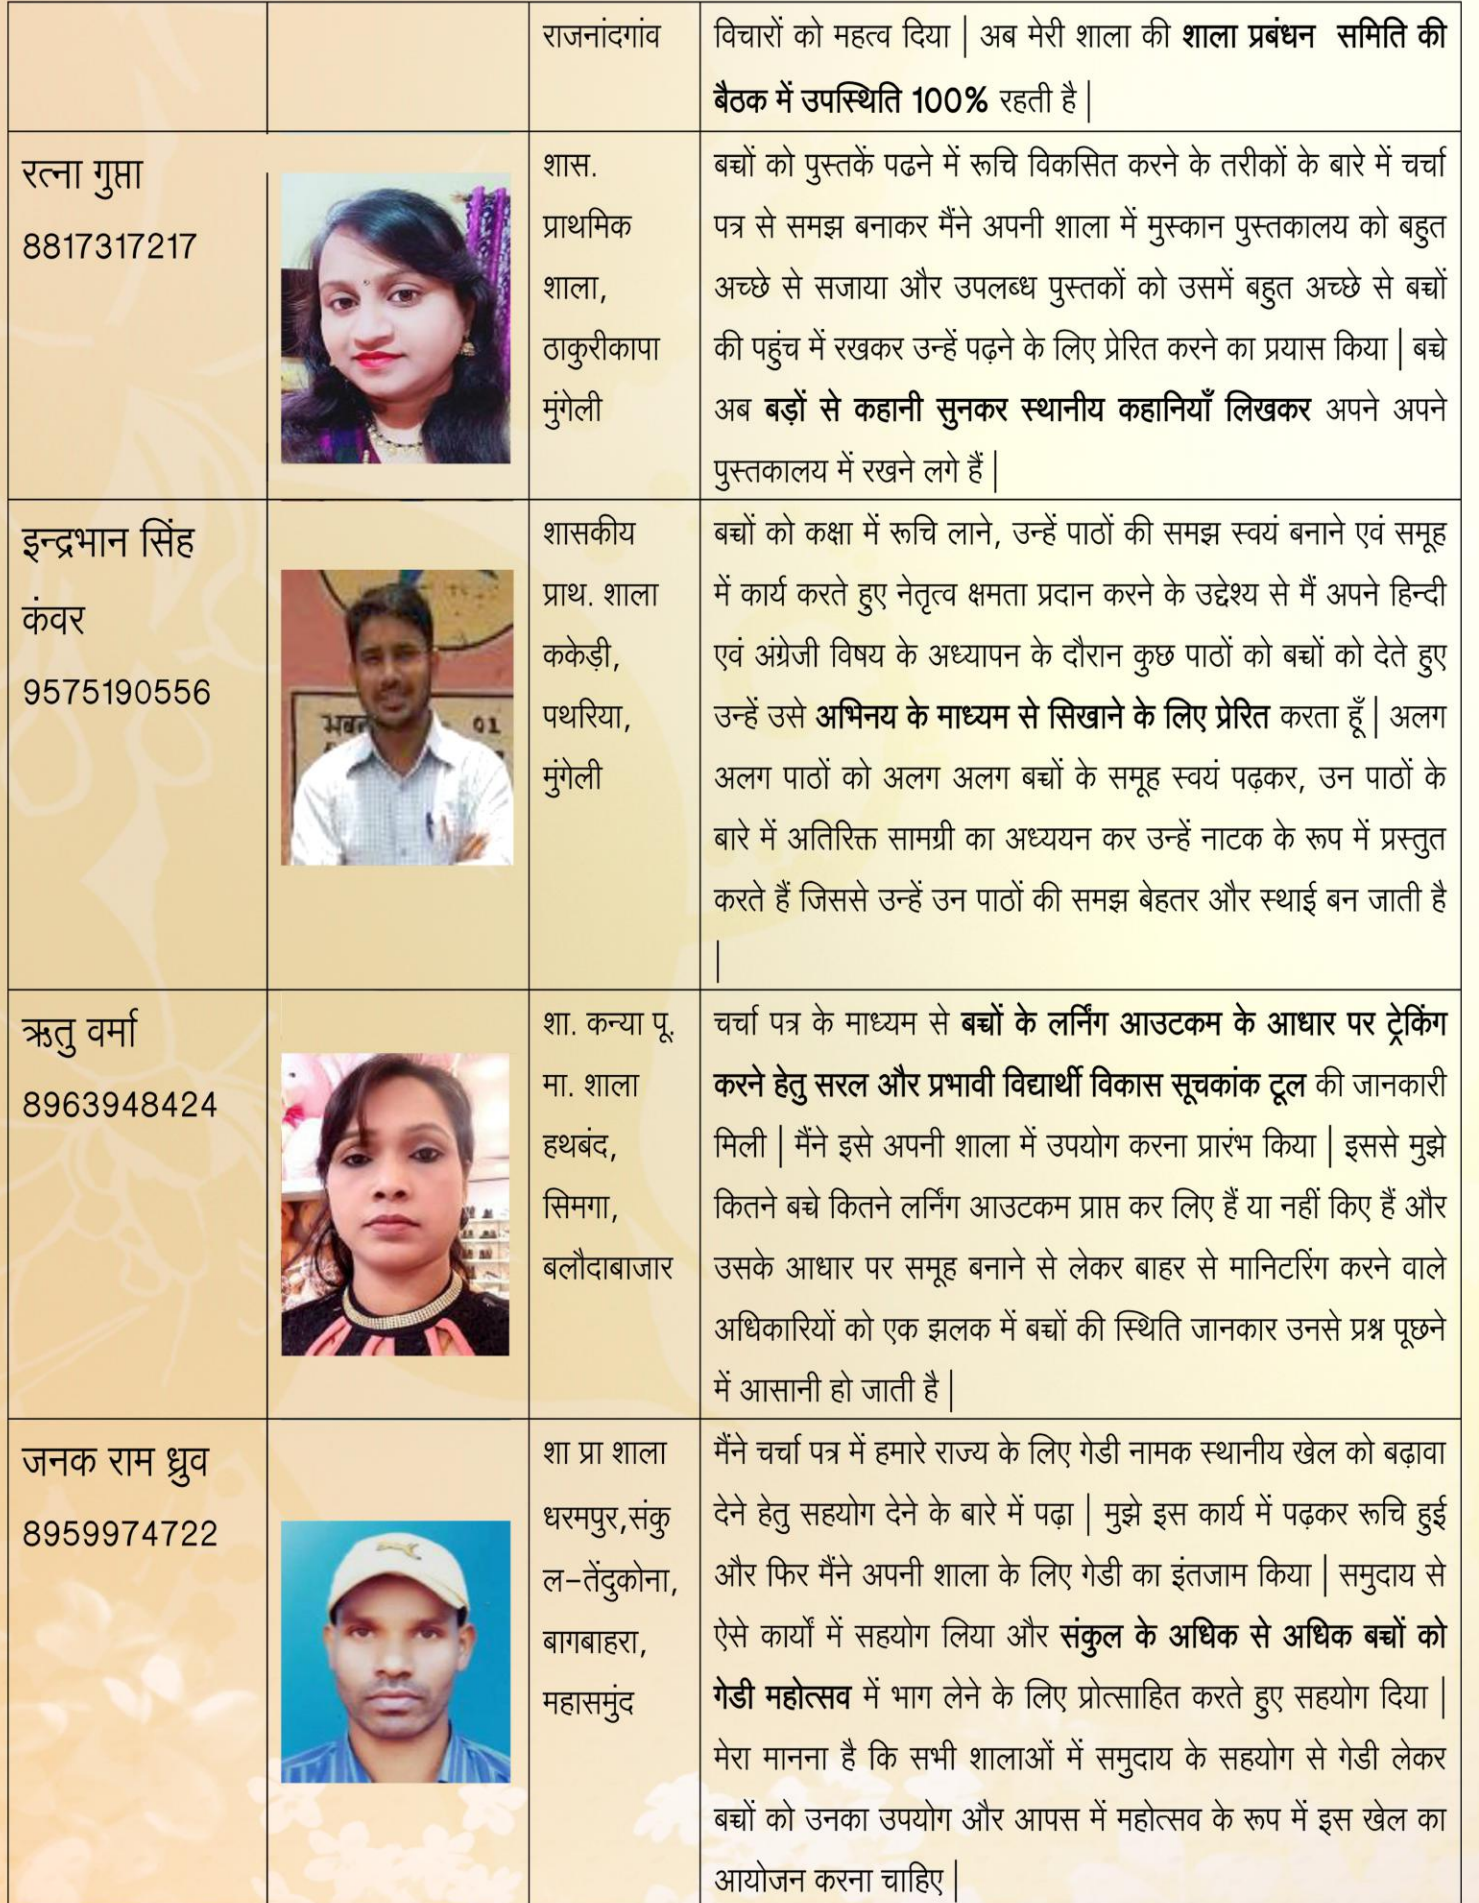 राजनांदगांव
विचारों को महत्व दिया | अब मेरी शाला की शाला प्रबंधन समिति की
बैठक में उपस्थिति 100% रहती है |
रत्ना गुप्ता
8817317217
शास.
प्राथमिक
शाला,
ठाकुरीकापा
मुंगेली
बच्चों को पुस्तकें पढने में रूचि विकसित करने के तरीकों के बारे में चर्चा
पत्र से समझ बनाकर मैंने अपनी शाला में मुस्कान पुस्तकालय को बहुत
अच्छे से सजाया और उपलब्ध पुस्तकों को उसमें बहुत अच्छे से बच्चों
की पहुंच में रखकर उन्हें पढ़ने के लिए प्रेरित करने का प्रयास किया | बच्चे
अब बड़ों से कहानी सुनकर स्थानीय कहानियाँ लिखकर अपने अपने
पुस्तकालय में रखने लगे हैं |
इन्द्रभान सिंह
कंवर
9575190556
01
शासकीय
प्राथ. शाला
ककेड़ी,
पथरिया,
मुंगेली
बच्चों को कक्षा में रूचि लाने, उन्हें पाठों की समझ स्वयं बनाने एवं समूह
में कार्य करते हुए नेतृत्व क्षमता प्रदान करने के उद्देश्य से मैं अपने हिन्दी
एवं अंग्रेजी विषय के अध्यापन के दौरान कुछ पाठों को बच्चों को देते हुए
उन्हें उसे अभिनय के माध्यम से सिखाने के लिए प्रेरित करता हूँ | अलग
अलग पाठों को अलग अलग बच्चों के समूह स्वयं पढ़कर, उन पाठों के
बारे में अतिरिक्त सामग्री का अध्ययन कर उन्हें नाटक के रूप में प्रस्तुत
करते हैं जिससे उन्हें उन पाठों की समझ बेहतर और स्थाई बन जाती है
|
ऋतु वर्मा
8963948424
शा. कन्या पू.
मा. शाला
हथबंद,
सिमगा,
बलौदाबाजार
चर्चा पत्र के माध्यम से बच्चों के लर्निंग आउटकम के आधार पर ट्रेकिंग
करने हेतु सरल और प्रभावी विद्यार्थी विकास सूचकांक टूल की जानकारी
मिली | मैंने इसे अपनी शाला में उपयोग करना प्रारंभ किया | इससे मुझे
कितने बच्चे कितने लर्निंग आउटकम प्राप्त कर लिए हैं या नहीं किए हैं और
उसके आधार पर समूह बनाने से लेकर बाहर से मानिटरिंग करने वाले
अधिकारियों को एक झलक में बच्चों की स्थिति जानकार उनसे प्रश्न पूछने
में आसानी हो जाती है |
जनक राम ध्रुव
8959974722
शा प्रा शाला
धरमपुर,संकु
ल-तेंदुकोना,
बागबाहरा,
महासमुंद
मैंने चर्चा पत्र में हमारे राज्य के लिए गेडी नामक स्थानीय खेल को बढ़ावा
देने हेतु सहयोग देने के बारे में पढ़ा | मुझे इस कार्य में पढ़कर रूचि हुई
और फिर मैंने अपनी शाला के लिए गेडी का इंतजाम किया | समुदाय से
ऐसे कार्यों में सहयोग लिया और संकुल के अधिक से अधिक बच्चों को
गेडी महोत्सव में भाग लेने के लिए प्रोत्साहित करते हुए सहयोग दिया |
मेरा मानना है कि सभी शालाओं में समुदाय के सहयोग से गेडी लेकर
बच्चों को उनका उपयोग और आपस में महोत्सव के रूप में इस खेल का
आयोजन करना चाहिए |